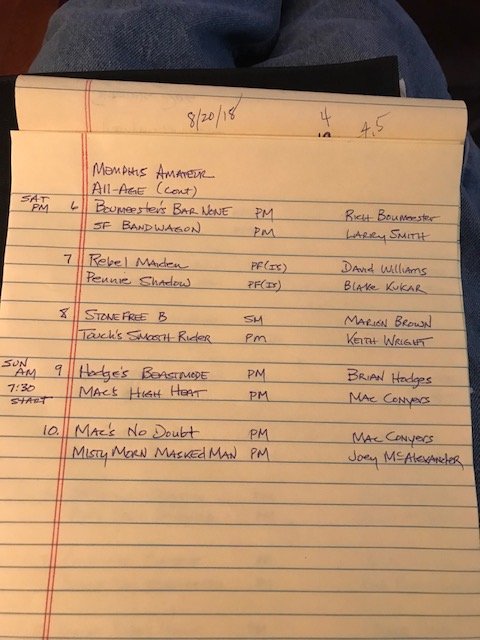 8/20/18 4
4.5
Memphis Amateur
All-Age (cont)
SAT PM 6 Boumeester's Bar None PM Rich Boumeester
SF Bandwagon PM Larry Smith
7 Rebel Maiden PF(IS) David Williams
Pennie Shadow PF(IS) Blake Kukar
8 Stonefree B SM Marion Brown
Touch's Smooth Rider PM Keith Wright
SUN AM 9 Hodge's Beastmode PM Brian Hodges
7:30 START Mac's High Heat PM Mac Conyers
10. Mac's No Doubt PM Mac Conyers
Misty Morn Masked Man PM Joey McAlexander